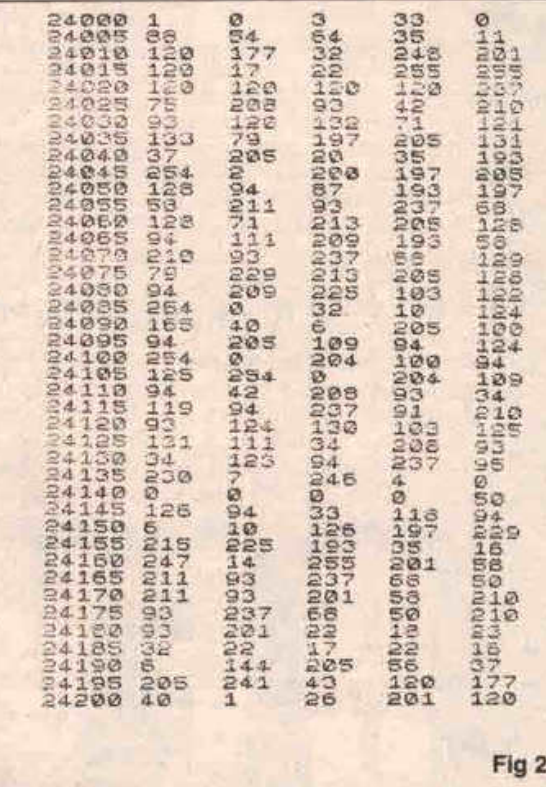 24000 1 0 3 33 0
24005 88 54 64 35 11
24010 120 177 32 248 201
24015 120 17 22 255 255
24020 120 120 120 120 237
24025 75 208 93 42 210
24030 93 120 132 71 121
24035 133 79 197 205 131
24040 37 205 20 35 193
24045 254 2 200 197 205
24050 128 94 87 193 197
24055 58 211 93 237 68
24060 128 71 213 205 128
24065 94 111 209 193 58
24070 210 93 237 68 129
24075 79 229 213 205 128
24080 94 209 225 103 122
24085 254 0 32 10 124
24090 165 40 6 205 100
24095 94 205 109 94 124
24100 254 0 204 100 94
24105 125 254 0 204 109
24110 94 42 208 93 34
24115 119 94 237 91 210
24120 93 124 130 103 125
24125 131 111 34 208 93
24130 34 123 94 237 95
24135 230 7 246 4 0
24140 0 0 0 0 50
24145 126 94 33 118 94
24150 6 10 126 197 229
24155 215 225 193 35 16
24160 247 14 255 201 58
24165 211 93 237 68 50
24170 211 93 201 58 210
24175 93 237 68 50 210
24180 93 201 22 18 23
24185 32 22 17 22 16
24190 6 144 205 56 37
24195 205 241 43 120 177
24200 40 1 26 201 120
Fig 2